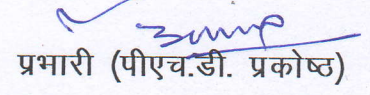 प्रभारी (पीएच.डी. प्रकोष्ठ)